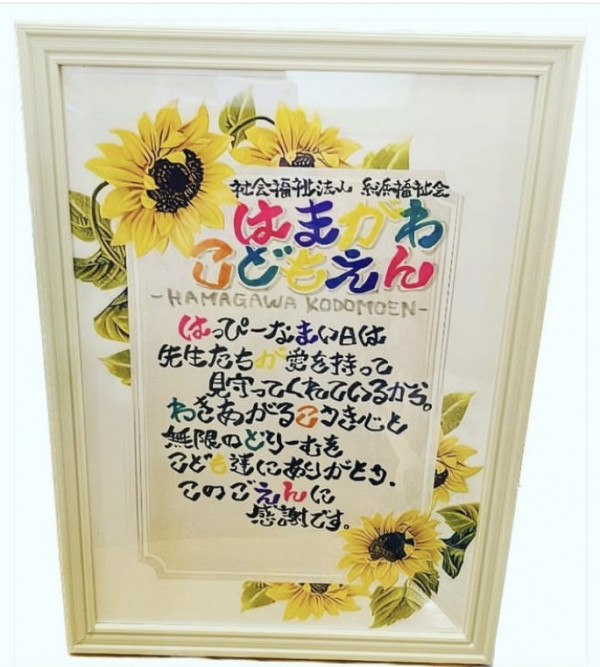 社会福祉法人 糸浜福祉会
はまがわ
こどもえん
-HAMAGAWA KODOMOEN-
はっぴーなまい日は
先生たちが愛を持って
見守ってくれているから。
わきあがるこうき心と
無限のどりーむを
こども達にありがとう.
このごえんに
感謝です。